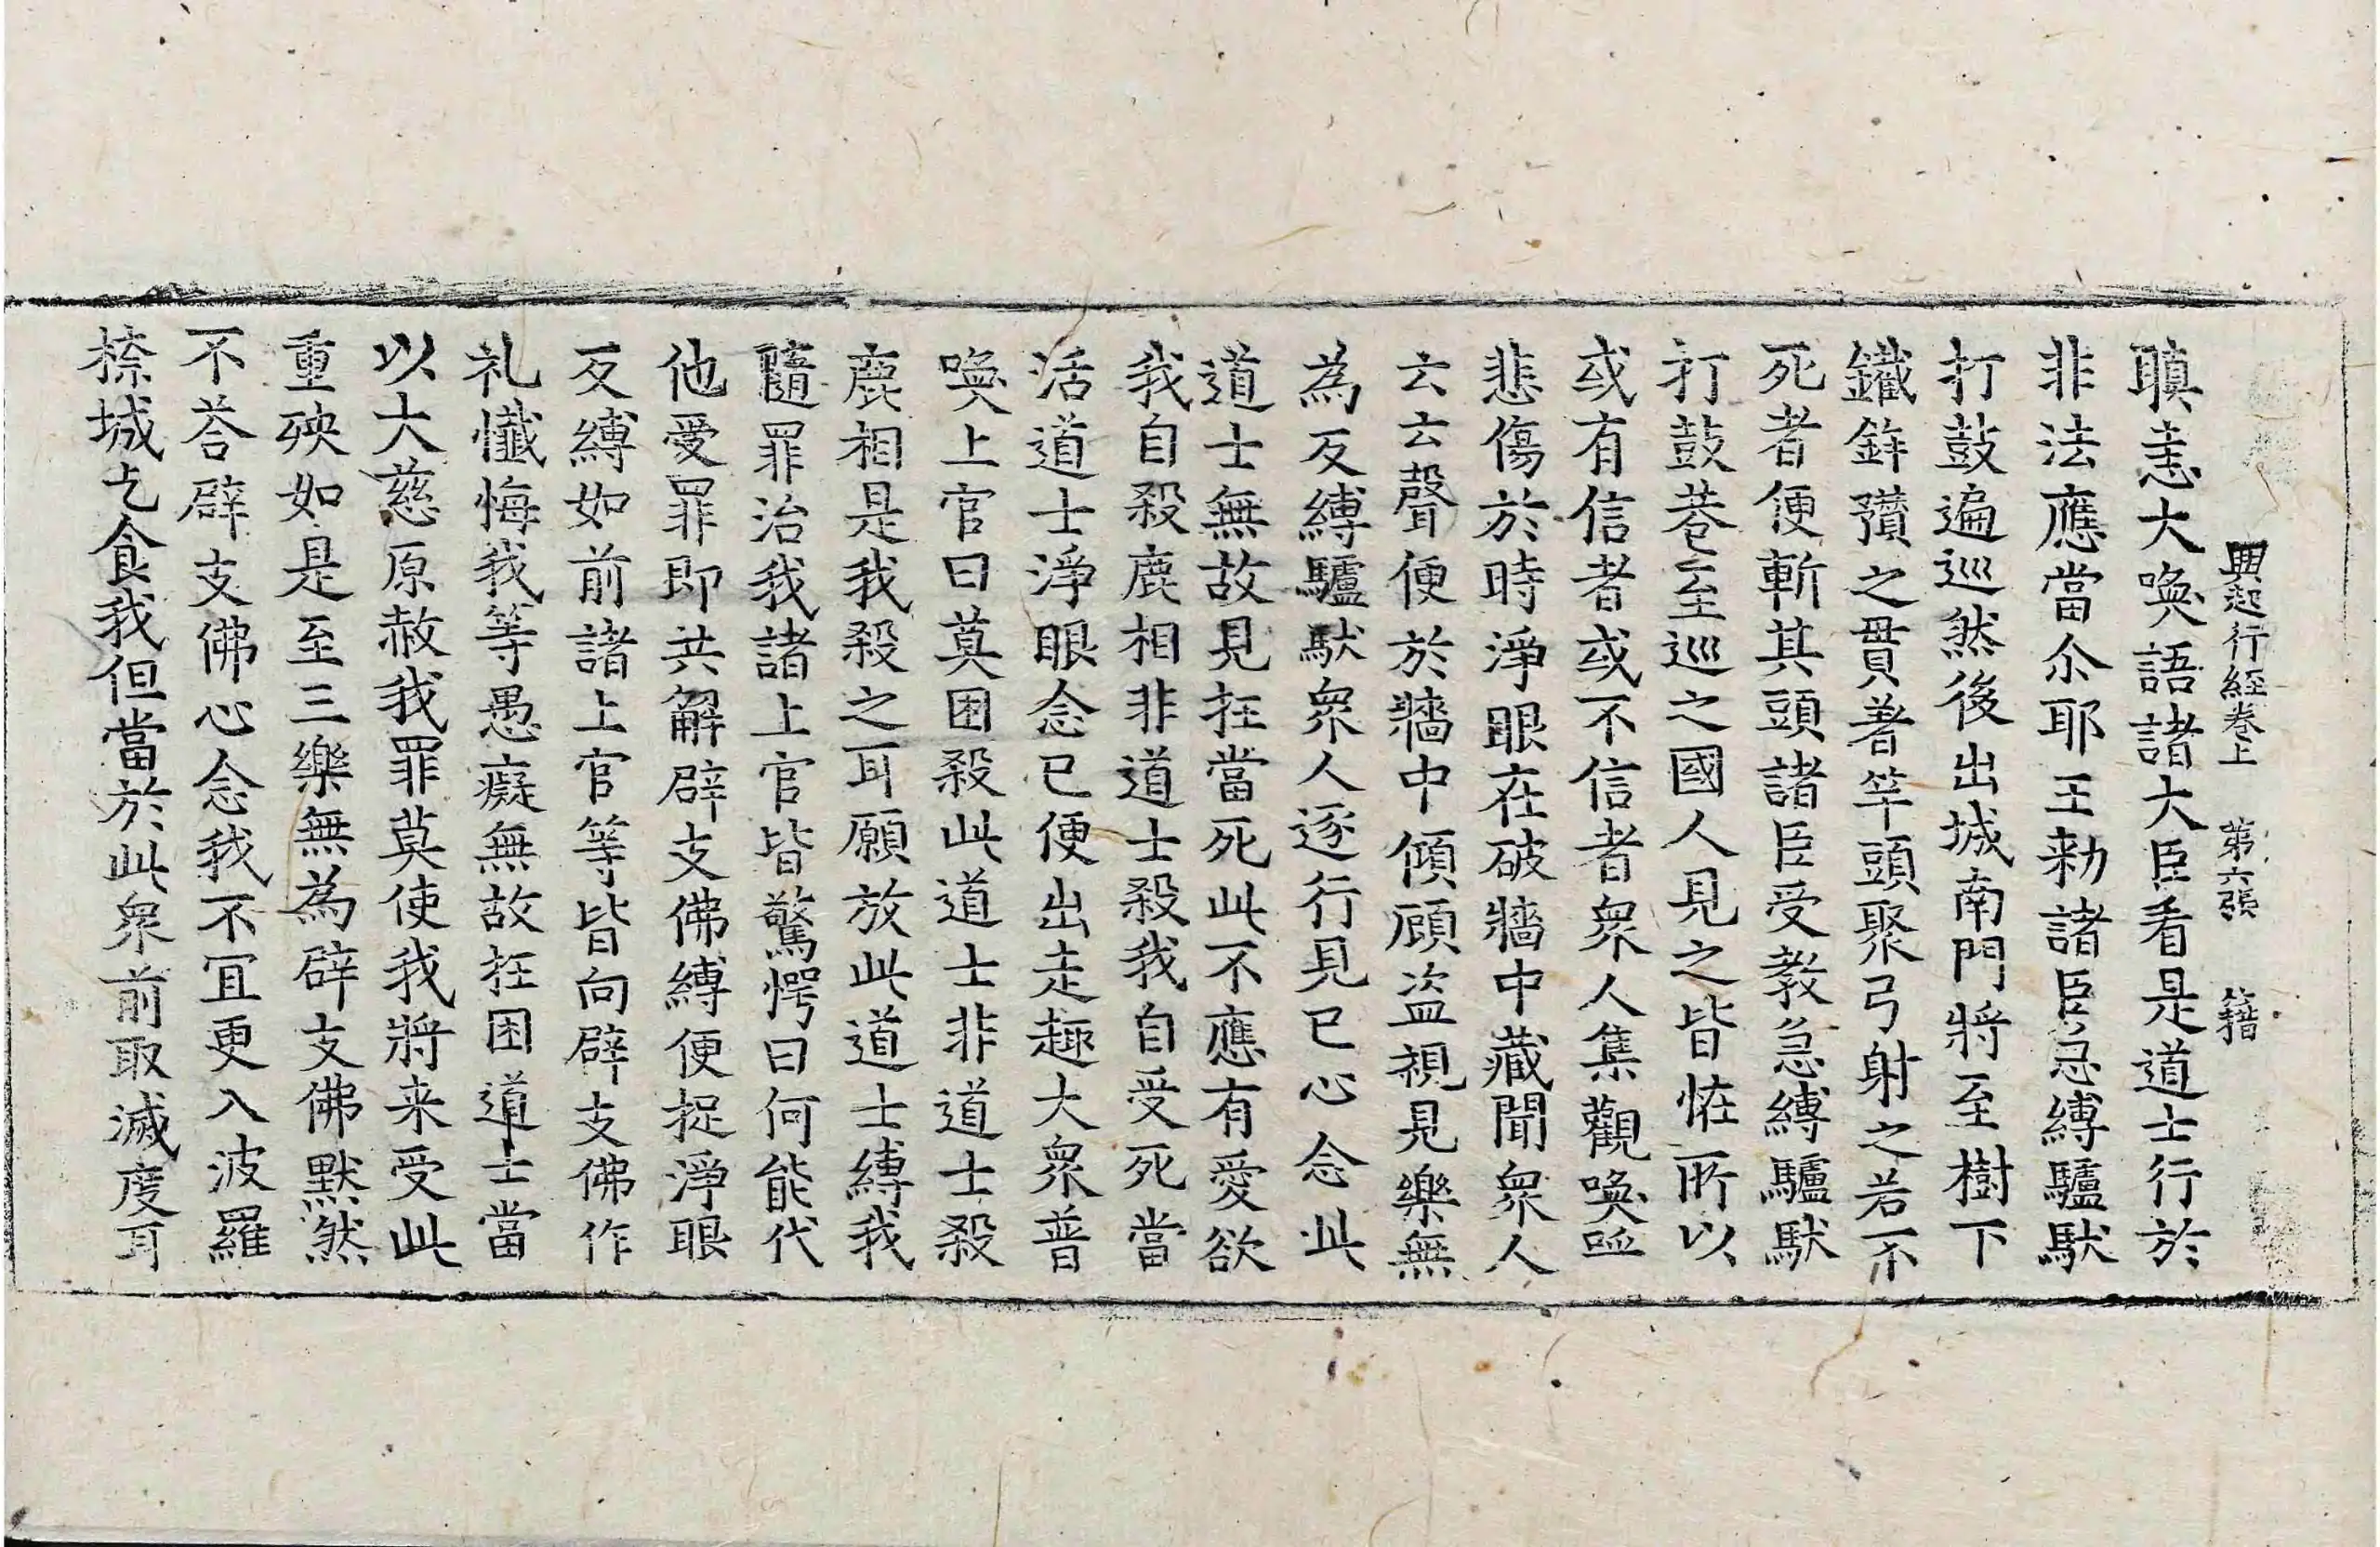 興起行経卷上 第六張 籍
瞋恚大喚語諸大臣看是道士行於
非法應當尒耶王勑諸臣急縛驢馱
打鼓遍巡然後出城南門將至樹下
鐵鉾䂎之貫著竿頭聚弓射之若不
死者便斬其頭諸臣受教急縛驢馱
打鼓巷至巡之國人見之皆恠所以
或有信者或不信者衆人集觀喚
悲傷於時淨眼在破牆中藏聞衆人
云云聲便於牆中傾顧盜視見樂無
為反縛驢馱衆人逐行見已心念此
道士無故見抂當死此不應有愛欲
我自殺鹿相非道士殺我自受死當
活道士淨眼念已便出走趣大衆普
喚上官曰莫困殺此道士非道士殺
鹿相是我殺之耳願放此道士縛我
隨罪治我諸上官皆驚愕曰何能代
他受罪即共解辟支佛縛便捉淨眼
反縛如前諸上官等皆向辟支佛作
礼懺悔我等愚癡無故抂困道士當
以大慈原赦我罪莫使我將来受此
重殃如是至三樂無為辟支佛默然
不荅辟支佛心念我不冝更入波羅
㮈城乞食我但當於此衆前取滅度耳